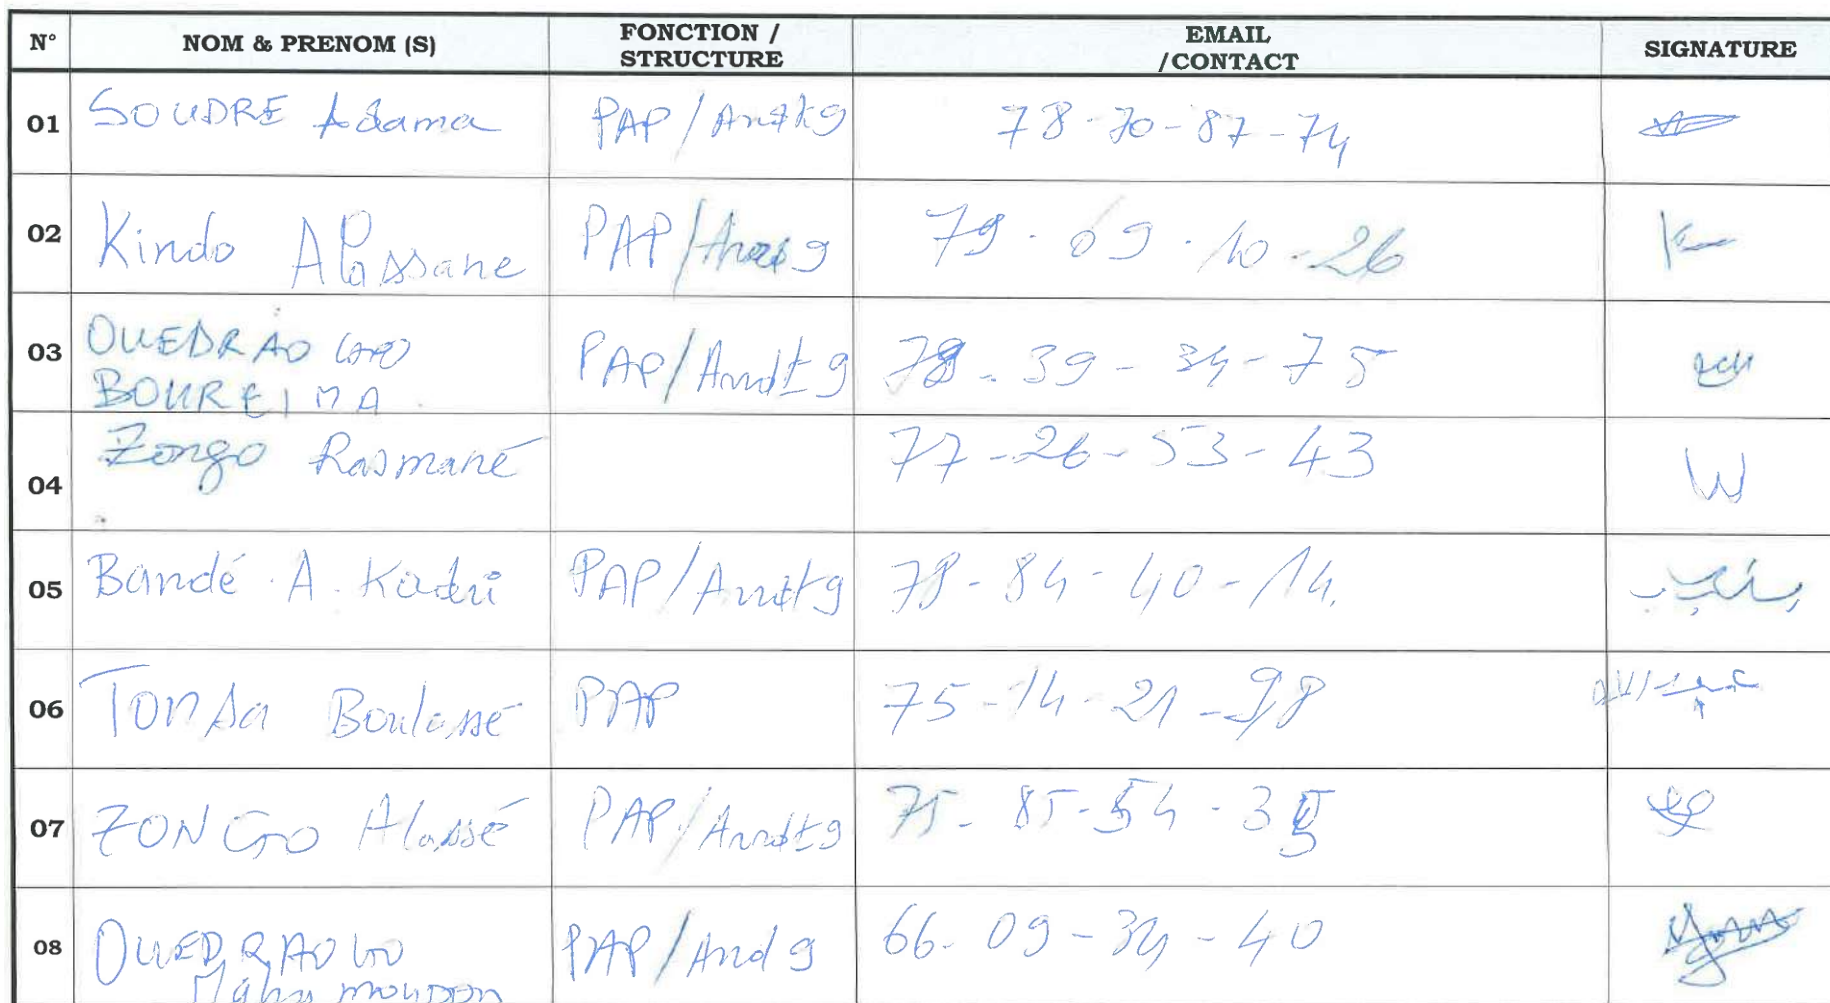 N° NOM & PRENOM (S) FONCTION / STRUCTURE EMAIL /CONTACT SIGNATURE
01 SOUDRE Adama PAP/Arrdt 9 78-70-87-74
02 Kindo Alassane PAP/ 9 79-09-10-26
03 OUEDRAOGO BOUREIMA PAP/Arrdt 9 78-39-34-75
04 Zongo Rasmané 77-26-53-43
05 Bandé A. Kadri PAP/Arrdt 9 78-84-40-14
06 Tonda Boulassé PAP 75-14-21-98
07 ZONGO Alassé PAP/Arrdt 9 75-85-54-35
08 OUEDRAOGO PAP/And 9 66-09-34-40